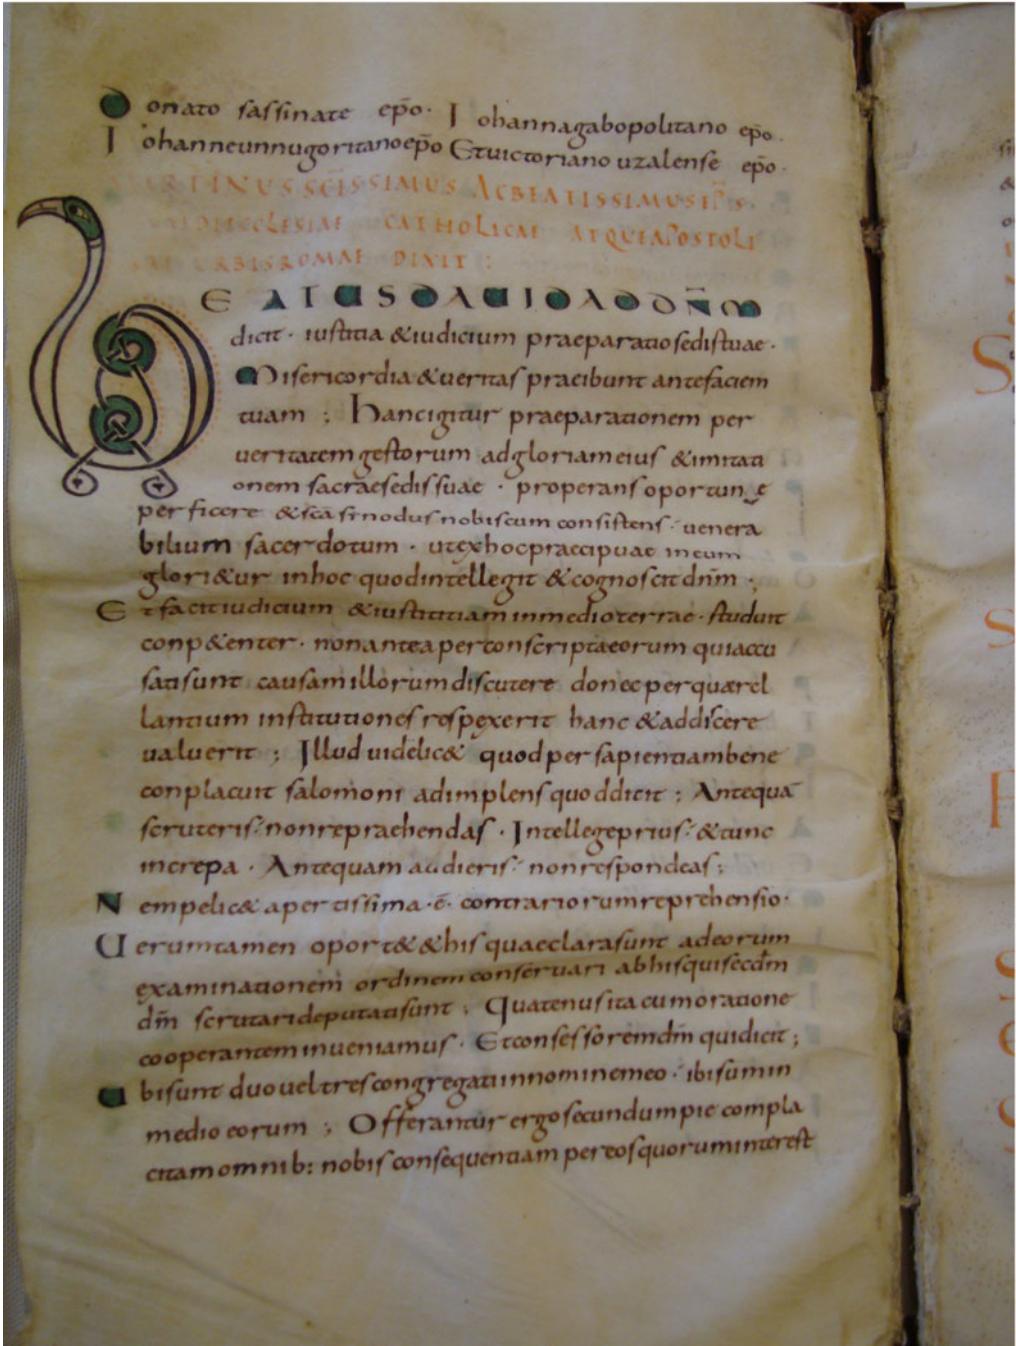 Donato sassinate ep̄o· Iohannagabopolitano ep̄o·
Iohanneunnugoritano ep̄o Etuictoriano uzalense ep̄o·
MARTINUS SC̄ISSIMUS ACBEATISSIMUS EP̄S·
ECCLESIAE CATHOLICAE ATQUEAPOSTOLI
URBISROMAE DIXIT :
BEATUSDAUIDADDN̄M
dicit · iustitia &iudicium praeparatio sedistuae·
Misericordia &ueritas praeibunt antefaciem
tuam ; Hancigitur praeparationem per
ueritatem gestorum adgloriameius &imitati
onem sacraesedissuae · properans oportun e
perficere &sc̄a sinodus nobiscum consistens· uenera
bilium sacerdotum · utexhocpraecipuae ineum
glori&ur inhoc quodintellegit &cognoscit dn̄m ;
Et facit iudicium &iustitiam inmedioterrae · studuit
conp&enter · nonantea perconscriptaeorum quiaccu
sati sunt causam illorum discutere donec perquaerel
lantium institutiones respexerit hanc &addiscere
ualuerit ; Illud uidelic& quod per sapientiambene
conplacuit salomoni adimplens quoddicit ; Antequā
scruteris· nonrepraehendas · Intellegeprius· &tunc
increpa · Antequam audieris· nonrespondeas ;
Nempelic& apertissima ·ē· contrariorumreprehensio·
Uerumtamen oport& &his quaeclarasunt adeorum
examinationem ordinem conseruari abhisquisecdm̄
dm̄ scrutarideputatisunt ; Quatenusita cumoratione
cooperantem inueniamus · Etconsessorem dm̄ quidicit ;
Ubisunt duo uel tres congregati innominemeo · ibisumin
medio eorum ; Offerantur ergo secundum pie compla
citam omnib: nobis consequentiam pereos quoruminterest